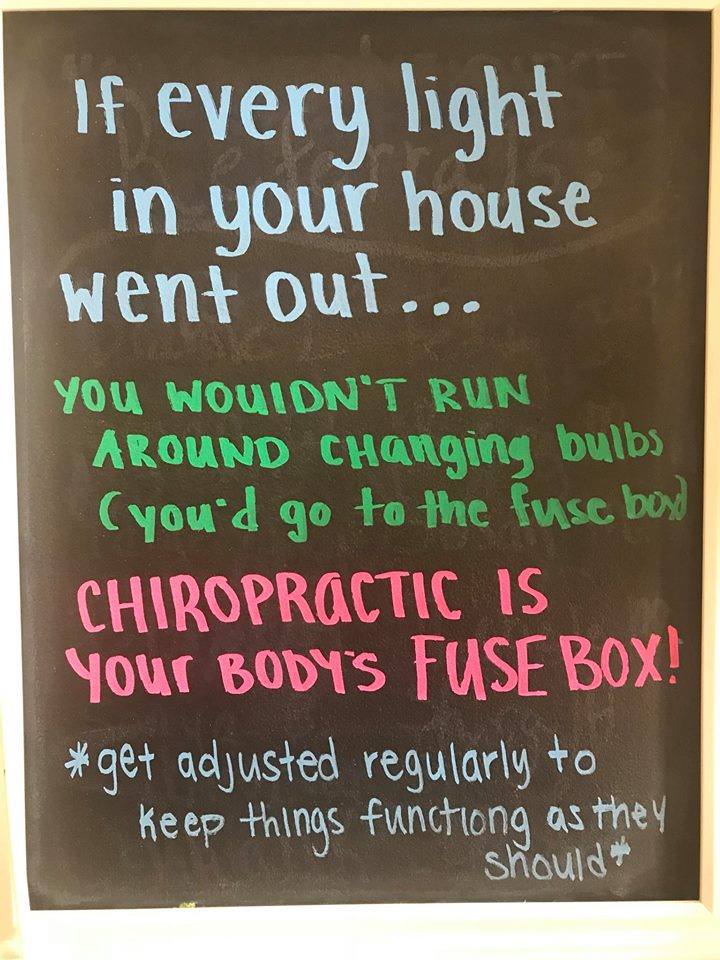 If every light
in your house
went out...
YOU WOULDN'T RUN
AROUND CHanging bulbs
(you'd go to the fuse box)
CHIROPRaCTIC IS
YOUr BODY'S FUSE BOX!
*get adjusted regularly to
keep things functiong as they
should*